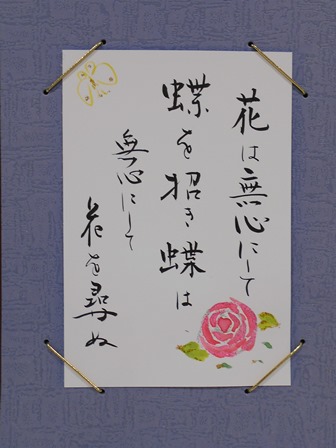 花は無心にして
蝶を招き蝶は
無心にして
花を尋ぬ